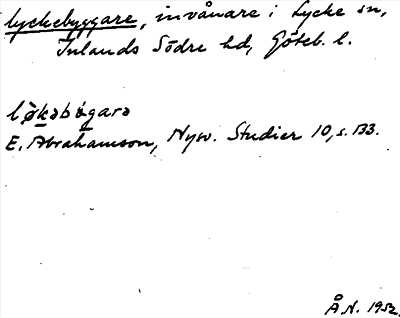 lyckebyggare, invånare i Lycke sn,
Inlands Södre hd, Göteb. l.
løkəbøgarə
E. Abrahamson, Nysv. Studier 10, s. 133.
Å N. 1952.